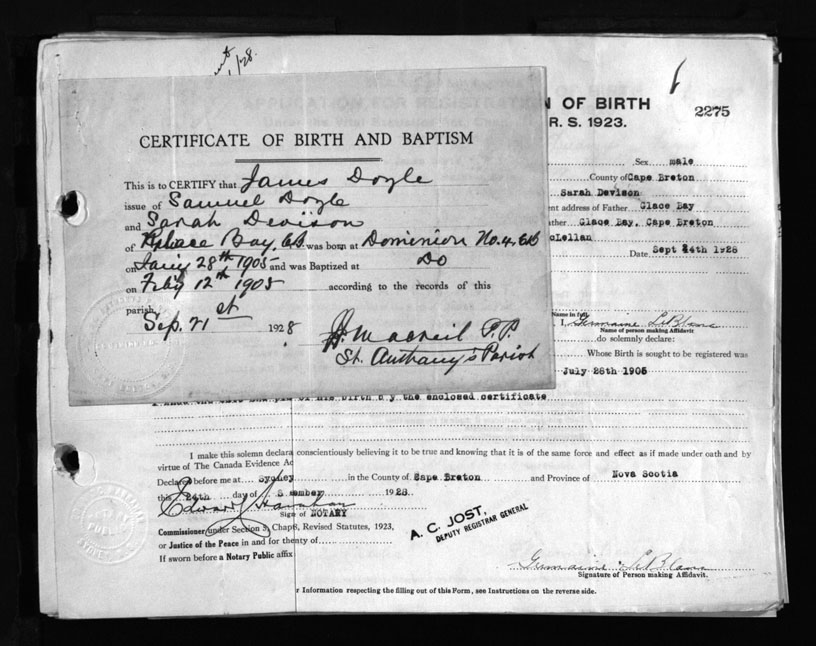 1/28.
N OF BIRTH
R. S. 1923.
2275
CERTIFICATE OF BIRTH AND BAPTISM
This is to CERTIFY that James Doyle
issue of Samuel Doyle
and Sarah Devison
of Glace Bay, CB was born at Dominion No. 4, CB
on Jany 28th 1905 and was Baptized at Do
on Feby 12th 1905 according to the records of this
parish.
Sep. 21st 1928.
MacNeil P.P.
St. Anthony's Parish
Sex male
County of Cape Breton
Sarah Devison
ent address of Father Glace Bay
ather Glace Bay, Cape Breton
cLellan
Date Sept 24th 1928
Name in full
I, Germaine LeBlanc
Name of person making Affidavit
do solemnly declare:
Whose Birth is sought to be registered was
July 28th 1905
of his birth by the enclosed certificate
I make this solemn declara conscientiously believing it to be true and knowing that it is of the same force and effect as if made under oath and by
virtue of The Canada Evidence Ac
Declared before me at Sydney in the County of Cape Breton and Province of Nova Scotia
this 24th day of S ember 1928.
Edward
Sign of NOTARY
Commissioner under Section 3, Chap 8, Revised Statutes, 1923,
or Justice of the Peace in and for the nty of
If sworn before a Notary Public affix
A. C. JOST,
DEPUTY REGISTRAR GENERAL
Germaine LeBlanc
Signature of Person making Affidavit.
r Information respecting the filling out of this Form, see Instructions on the reverse side.